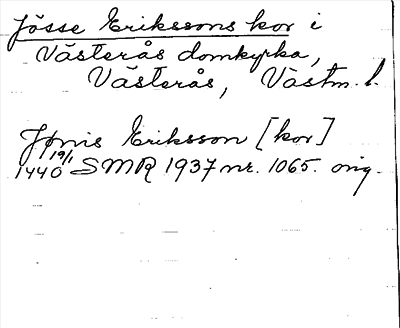 Jösse Erikssons kor i
Västerås domkyrka,
Västerås, Västm. l.
Jønis Eriksson [kor]
1440 19/1 SMR 1937 nr. 1065. orig.